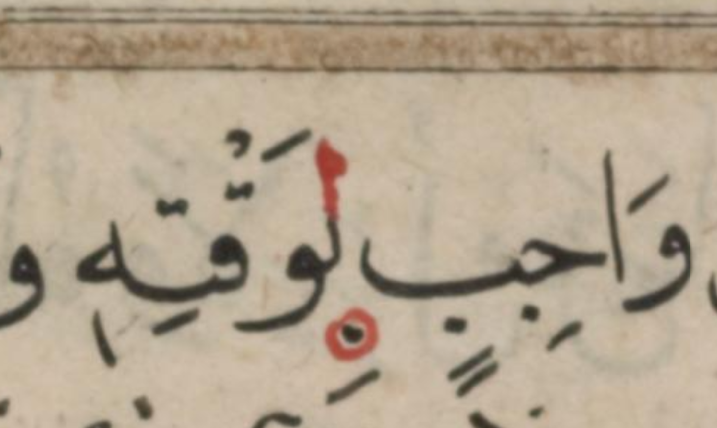 وَاجِبٍ لوَقْتِهٖ و